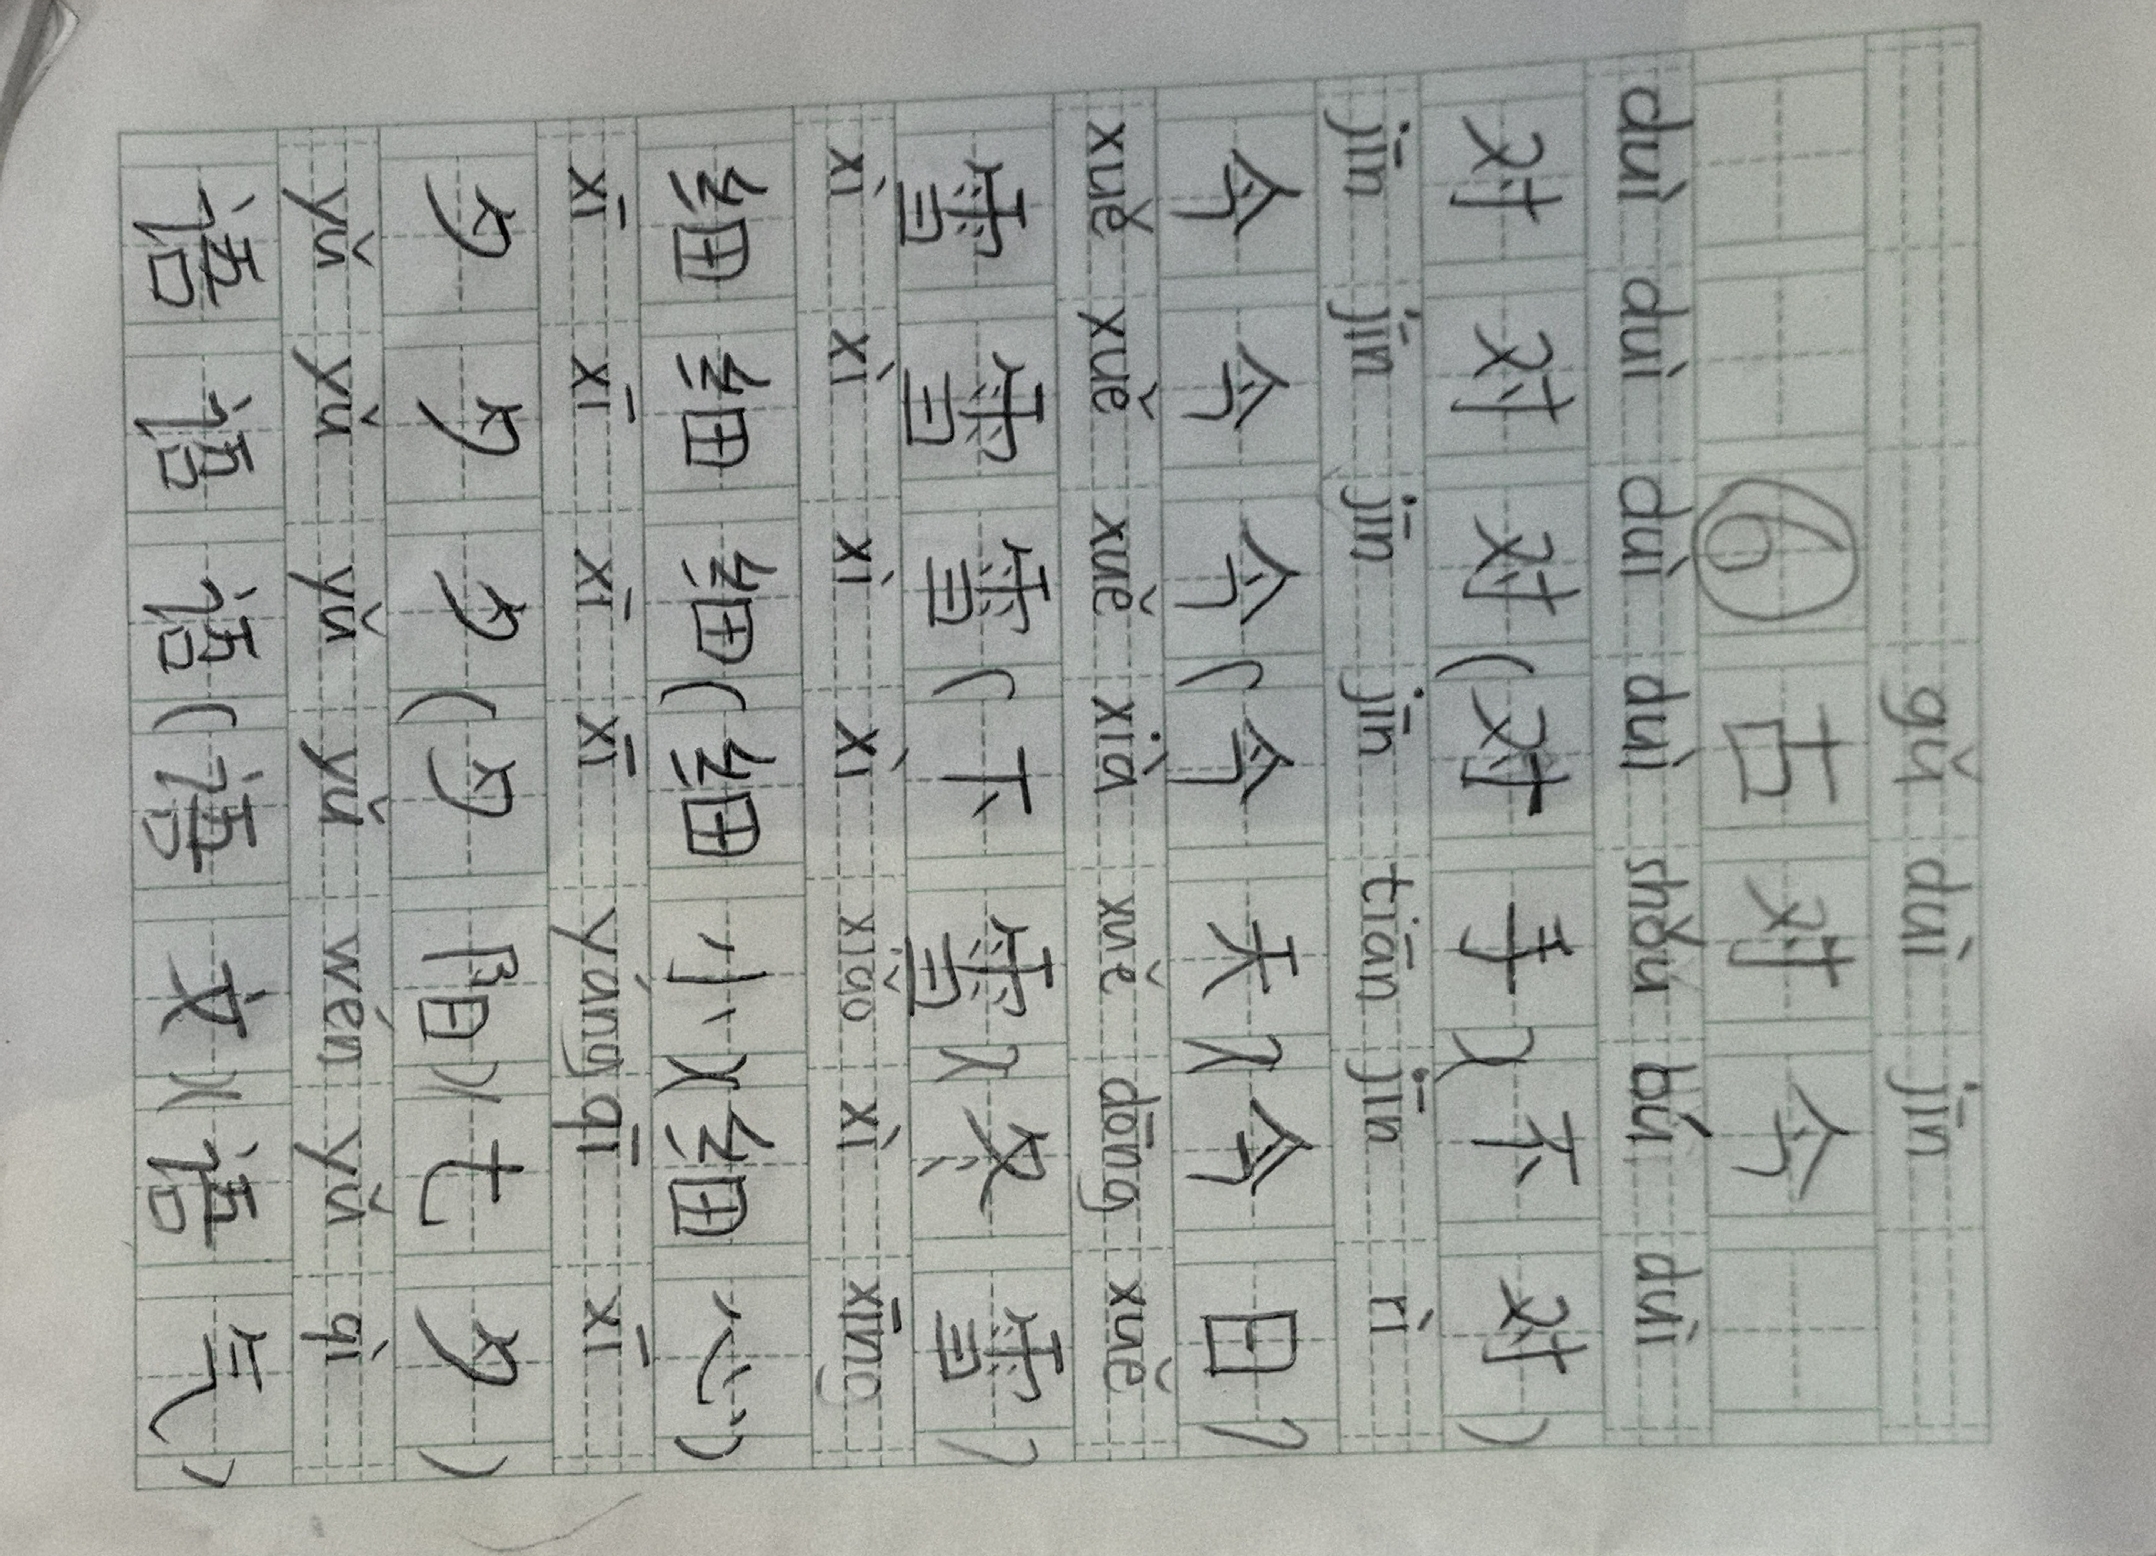 gǔ duì jīn
⑥ 古 对 今
duì duì duì duì shǒu bú duì
对 对 对 (对 手)(不 对)
jīn jīn jīn jīn tiān jīn rì
今 今 今 (今 天)(今 日)
xuě xuě xuě xià xuě dōng xuě
雪 雪 雪 (下 雪)(冬 雪)
xì xì xì xì xiǎo xì xīng
细 细 细 (细 小)(细 心)
xī xī xī xī yáng qī xī
夕 夕 夕 (夕 阳)(七 夕)
yǔ yǔ yǔ yǔ wén yǔ qì
语 语 语 (语 文)(语 气)